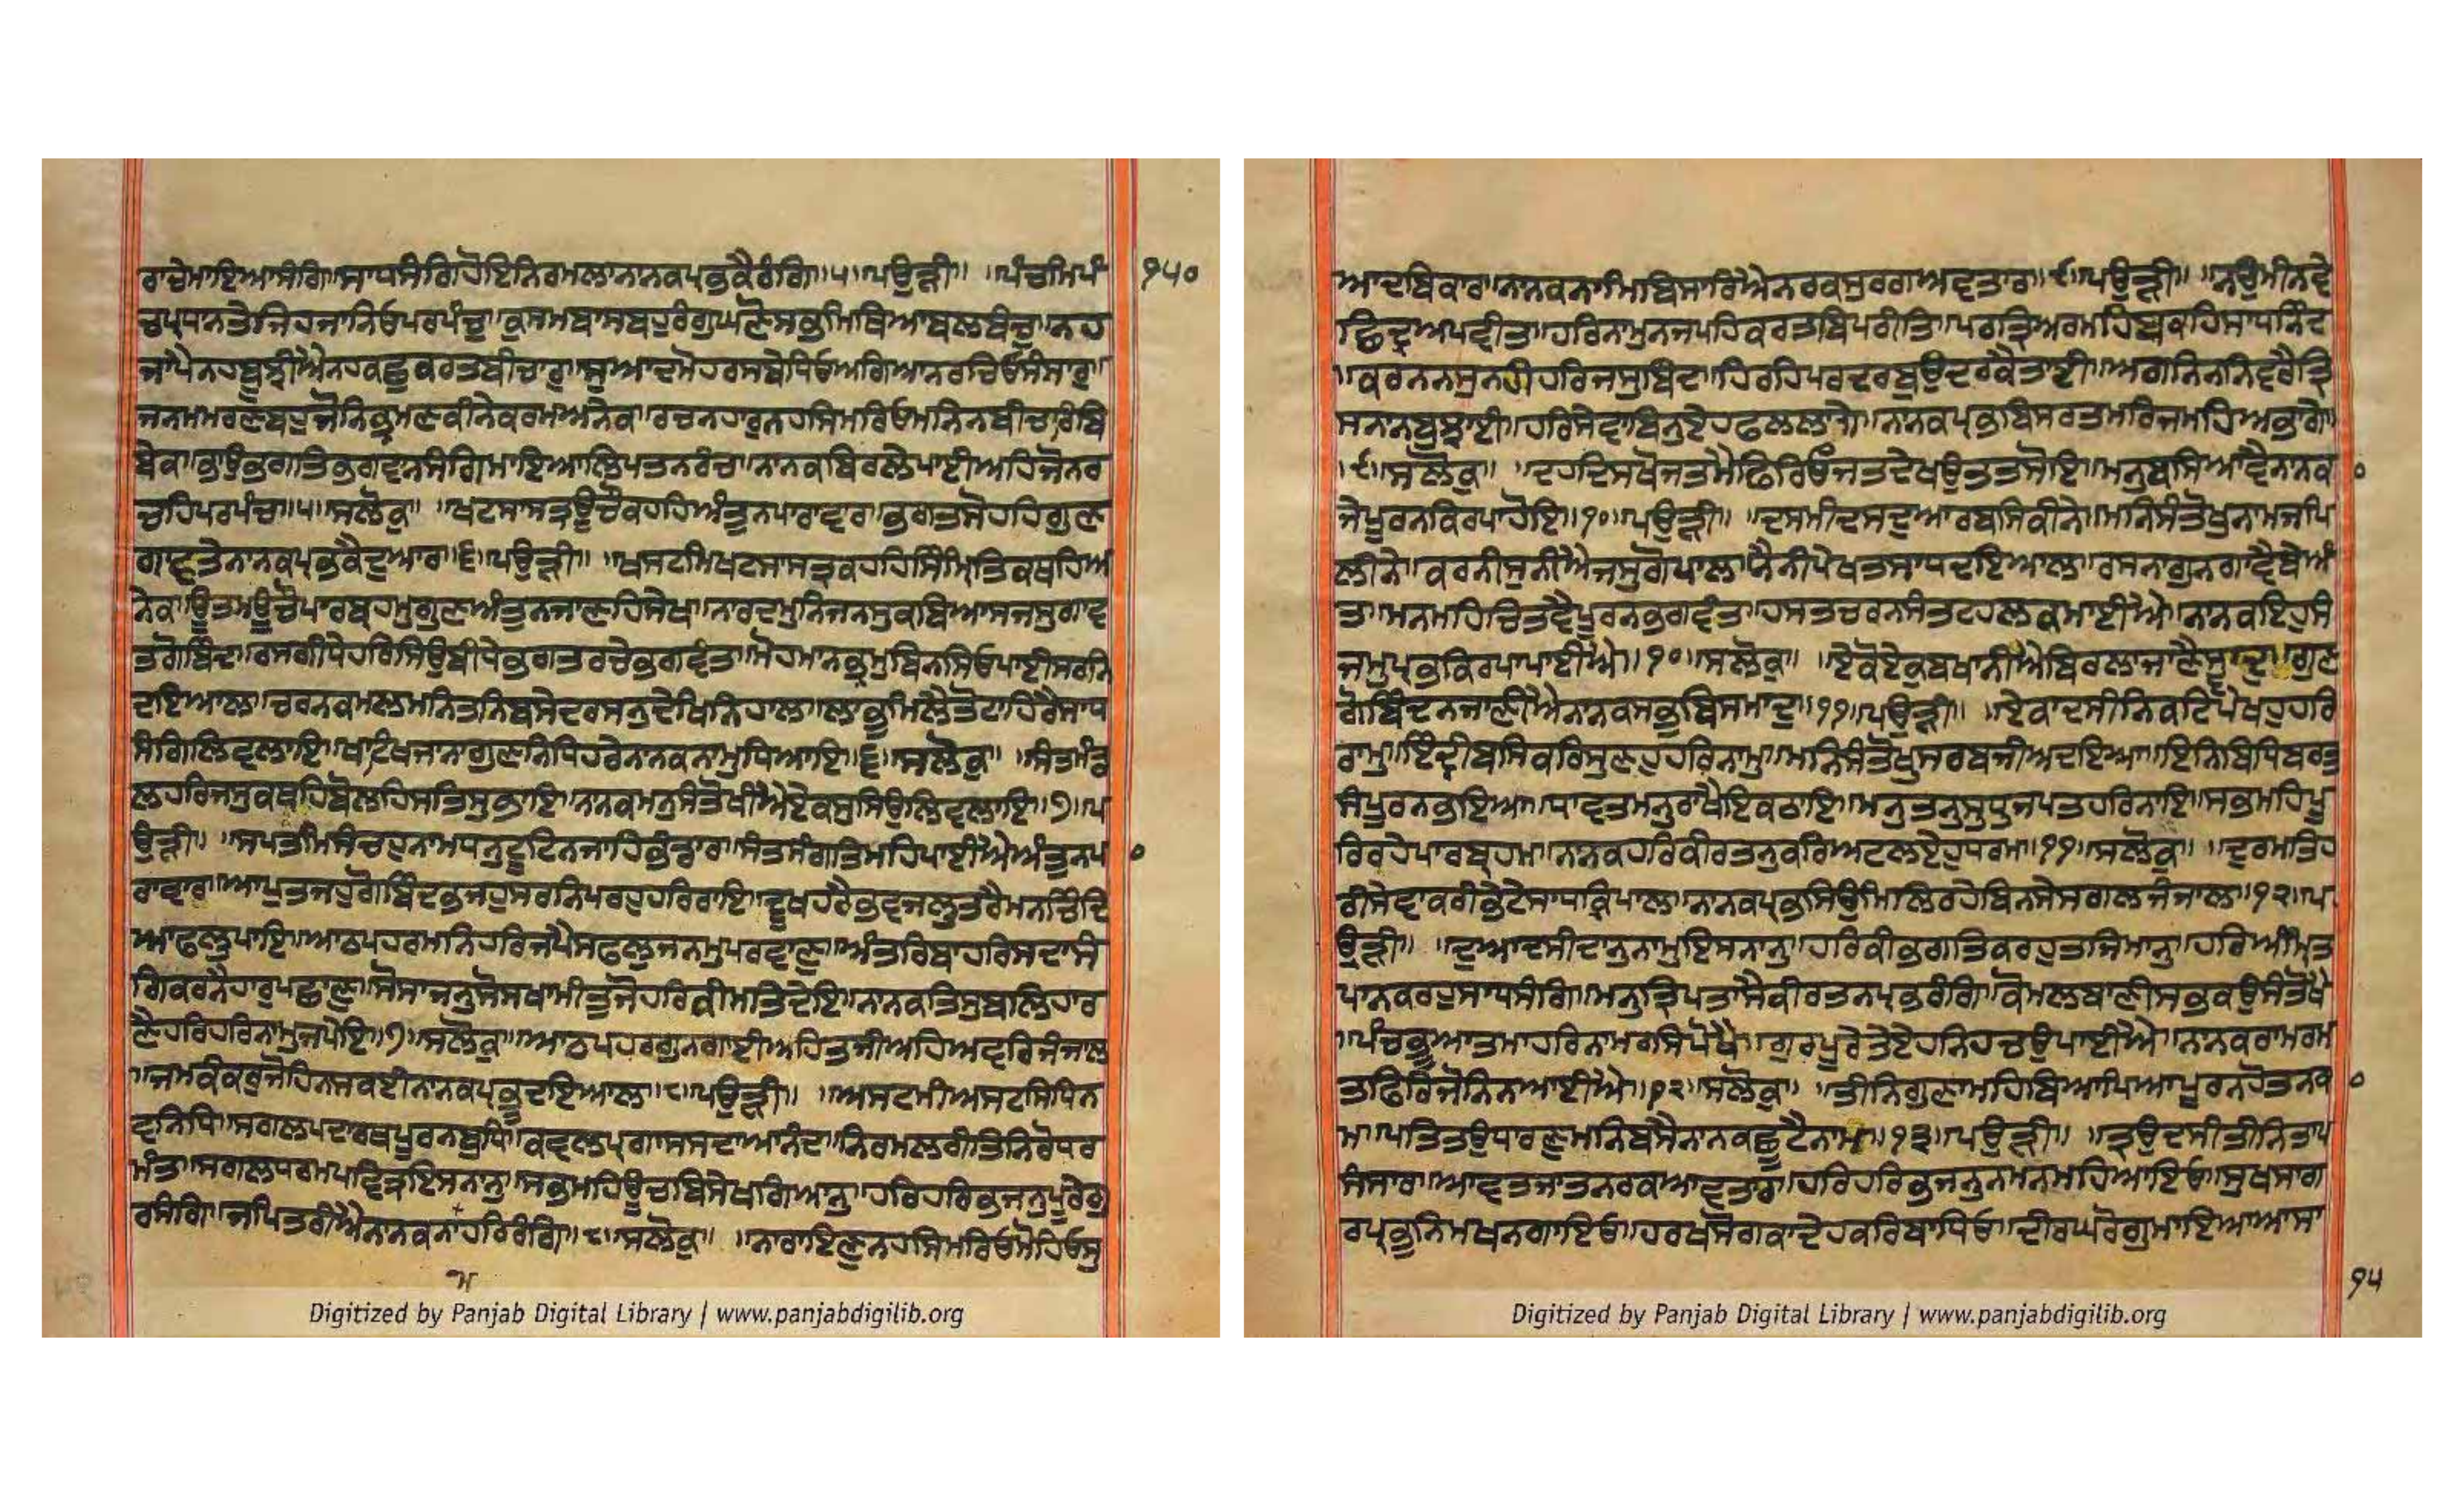 ਰਾਚੇਮਾਇਆਸੰਗਿ॥ਸਾਧਸੰਗਿਹੋਇਨਿਰਮਲਾਨਾਨਕਪ੍ਰਭਕੈਰੰਗਿ॥੫॥ਪਉੜੀ॥ ॥ਪੰਚਮਿਪੰ
ਚਪ੍ਰਧਾਨਤੇਜਿਹਜਾਨਿਓਪਰਪੰਚੁ॥ਕੁਸਮਬਾਸਬਹੁਰੰਗੁਘਣੋਸਭਮਿਥਿਆਬਲਬੰਚੁ॥ਨਹ
ਜਾਪੈਨਹਬੂਝੀਐਨਹਕਛੁਕਰਤਬੀਚਾਰੁ॥ਸੁਆਦਮੋਹਰਸਬੇਧਿਓਅਗਿਆਨਰਚਿਓਸੰਸਾਰੁ॥
ਜਨਮਮਰਣਬਹੁਜੋਨਿਭ੍ਰਮਣਕੀਨੇਕਰਮਅਨੇਕ॥ਰਚਨਹਾਰੁਨਹਸਿਮਰਿਓਮਨਿਨਬੀਚਾਰਿਬਿ
ਬੇਕ॥ਭਾਉਭਗਤਿਭਗਵਾਨਸੰਗਿਮਾਇਆਲਿਪਤਨਰੰਚ॥ਨਾਨਕਬਿਰਲੇਪਾਈਅਹਿਜੋਨਰ
ਚਹਿਪਰਪੰਚ॥੫॥ਸਲੋਕੁ॥ ॥ਖਟਸਾਸਤ੍ਰਊਚੌਕਹਹਿਅੰਤੁਨਪਾਰਾਵਾਰ॥ਭਗਤਸੋਹਹਿਗੁਣ
ਗਾਵਤੇਨਾਨਕਪ੍ਰਭਕੈਦੁਆਰ॥੬॥ਪਉੜੀ॥ ॥ਖਸਟਮਿਖਟਸਾਸਤ੍ਰਕਹਹਿਸਿੰਮ੍ਰਿਤਿਕਥਹਿਅ
ਨੇਕ॥ਊਤਮੁਊਚੌਪਾਰਬ੍ਰਹਮੁਗੁਣਅੰਤੁਨਜਾਣਹਿਸੇਖ॥ਨਾਰਦਮੁਨਿਜਨਸੁਕਬਿਆਸਜਸੁਗਾਵ
ਤਗੋਬਿੰਦ॥ਰਸਗੀਧੇਹਰਿਸਿਉਬੀਧੇਭਗਤਰਚੇਭਗਵੰਤ॥ਮੋਹਮਾਨਭ੍ਰਮੁਬਿਨਸਿਓਪਾਈਸਰਨਿ
ਦਇਆਲ॥ਚਰਨਕਮਲਮਨਿਤਨਿਬਸੇਦਰਸਨੁਦੇਖਿਨਿਹਾਲ॥ਲਾਭੁਮਿਲੈਤੋਟਾਹਿਰੈਸਾਧ
ਸੰਗਿਲਿਵਲਾਇ॥ਖਾਟਿਖਜਾਨਾਗੁਣਨਿਧਿਹਰੇਨਾਨਕਨਾਮੁਧਿਆਇ॥੬॥ਸਲੋਕੁ॥ ॥ਸੰਤਮੰਡ
ਲਹਰਿਜਸੁਕਥਹਿਬੋਲਹਿਸਤਿਸੁਭਾਇ॥ਨਾਨਕਮਨੁਸੰਤੋਖੀਐਏਕਸੁਸਿਉਲਿਵਲਾਇ॥੭॥ਪ
ਉੜੀ॥ ॥ਸਪਤਮਿਸੰਚਹੁਨਾਮਧਨੁਟੂਟਿਨਜਾਹਿਭੰਡਾਰ॥ਸੰਤਸੰਗਤਿਮਹਿਪਾਈਐਅੰਤੁਨਪਾ
ਰਾਵਾਰ॥ਆਪੁਤਜਹੁਗੋਬਿੰਦਭਜਹੁਸਰਨਿਪਰਹੁਹਰਿਰਾਇ॥ਦੂਖਹਰੈਭਵਜਲੁਤਰੈਮਨਚਿੰਦਿ
ਆਫਲੁਪਾਇ॥ਆਠਪਹਰਮਨਿਹਰਿਜਪੈਸਫਲੁਜਨਮੁਪਰਵਾਣੁ॥ਅੰਤਰਿਬਾਹਰਿਸਦਾਸੰ
ਗਿਕਰਨੈਹਾਰੁਪਛਾਣੁ॥ਸੋਸਾਜਨੁਸੋਸਖਾਮੀਤੁਜੋਹਰਿਕੀਮਤਿਦੇਇ॥ਨਾਨਕਤਿਸੁਬਲਿਹਾਰ
ਣੈਹਰਿਹਰਿਨਾਮੁਜਪੇਇ॥੭॥ਸਲੋਕੁ॥ਆਠਪਹਰਗੁਨਗਾਈਅਹਿਤਜੀਅਹਿਅਵਰਿਜੰਜਾਲ
॥ਜਮਕੰਕਰੁਜੋਹਿਨਸਕਈਨਾਨਕਪ੍ਰਭੂਦਇਆਲ॥੮॥ਪਉੜੀ॥ ॥ਅਸਟਮੀਅਸਟਸਿਧਿਨ
ਵਨਿਧਿ॥ਸਗਲਪਦਾਰਥਪੂਰਨਬੁਧਿ॥ਕਵਲਪ੍ਰਗਾਸਸਦਾਆਨੰਦ॥ਨਿਰਮਲਰੀਤਿਨਿਰੋਧਰ
ਮੰਤ॥ਸਗਲਧਰਮਪਵਿਤ੍ਰਇਸਨਾਨੁ॥ਸਭਮਹਿਊਚਬਿਸੇਖਗਿਆਨੁ॥ਹਰਿਹਰਿਭਜਨੁਪੂਰੇਗੁ
ਰਸੰਗਿ॥ਜਪਿਤਰੀਐਨਾਨਕਨਾਹਰਿਰੰਗਿ॥੮॥ਸਲੋਕੁ॥ ॥ਨਾਰਾਇਣੁਨਹਸਿਮਰਿਓਮੋਹਿਓਸੁ
੧੫੦
੦
ਮ
Digitized by Panjab Digital Library | www.panjabdigilib.org
ਆਦਬਿਕਾਰ॥ਨਾਨਕਨਾਮਿਬਿਸਾਰਿਐਨਰਕਸੁਰਗਅਵਤਾਰ॥੯॥ਪਉੜੀ॥ ॥ਨਉਮੀਨਵੇ
ਛਿਦ੍ਰਅਪਵੀਤ॥ਹਰਿਨਾਮੁਨਜਪਹਿਕਰਤਬਿਪਰੀਤਿ॥ਪਰਤ੍ਰਿਅਰਮਹਿਬਕਹਿਸਾਧਨਿੰਦ
॥ਕਰਨਨਸੁਨਹੀਹਰਿਜਸੁਬਿੰਦ॥ਹਿਰਹਿਪਰਦਰਬੁਉਦਰਕੈਤਾਈ॥ਅਗਨਿਨਨਿਵਰੈਤ੍ਰਿ
ਸਨਾਨਬੁਝਾਈ॥ਹਰਿਸੇਵਾਬਿਨੁਏਹਫਲਲਾਗੇ॥ਨਾਨਕਪ੍ਰਭਬਿਸਰਤਮਰਿਜਮਹਿਅਭਾਗੇ॥
॥੯॥ਸਲੋਕੁ॥ ॥ਦਹਦਿਸਖੋਜਤਮੈਫਿਰਿਓਜਤਦੇਖਉਤਤਸੋਇ॥ਮਨੁਬਸਿਆਵੈਨਾਨਕ
ਜੇਪੂਰਨਕਿਰਪਾਹੋਇ॥੧੦॥ਪਉੜੀ॥ ॥ਦਸਮੀਦਸਦੁਆਰਬਸਿਕੀਨੇ॥ਮਨਿਸੰਤੋਖੁਨਾਮਜਪਿ
ਲੀਨੇ॥ਕਰਨੀਸੁਨੀਐਜਸੁਗੋਪਾਲ॥ਨੈਨੀਪੇਖਤਸਾਧਦਇਆਲ॥ਰਸਨਾਗੁਨਗਾਵੈਬੇਅੰ
ਤ॥ਮਨਮਹਿਚਿਤਵੈਪੂਰਨਭਗਵੰਤ॥ਹਸਤਚਰਨਸੰਤਟਹਲਕਮਾਈਐ॥ਨਾਨਕਇਹੁਸੰ
ਜਮੁਪ੍ਰਭਕਿਰਪਾਪਾਈਐ॥੧੦॥ਸਲੋਕੁ॥ ॥ਏਕੋਏਕੁਬਖਾਨੀਐਬਿਰਲਾਜਾਣੈਸ੍ਵਾਦੁ॥ਗੁਣ
ਗੋਬਿੰਦਨਜਾਣੀਐਨਾਨਕਸਭੁਬਿਸਮਾਦੁ॥੧੧॥ਪਉੜੀ॥ ॥ਏਕਾਦਸੀਨਿਕਟਿਪੇਖਹੁਹਰਿ
ਰਾਮੁ॥ਇੰਦ੍ਰੀਬਸਿਕਰਿਸੁਣਹੁਹਰਿਨਾਮੁ॥ਮਨਿਸੰਤੋਖੁਸਰਬਜੀਅਦਇਆ॥ਇਨਿਬਿਧਿਬਰਤੁ
ਸੰਪੂਰਨਭਇਆ॥ਧਾਵਤਮਨੁਰਾਖੈਇਕਠਾਇ॥ਮਨੁਤਨੁਸੁਧੁਜਪਤਹਰਿਨਾਇ॥ਸਭਮਹਿਪੂ
ਰਿਰਹੇਪਾਰਬ੍ਰਹਮ॥ਨਾਨਕਹਰਿਕੀਰਤਨੁਕਰਿਅਟਲਏਹੁਧਰਮ॥੧੧॥ਸਲੋਕੁ॥ ॥ਦੁਰਮਤਿਹ
ਰੀਸੇਵਾਕਰੀਭੇਟੇਸਾਧਕ੍ਰਿਪਾਲ॥ਨਾਨਕਪ੍ਰਭਸਿਉਮਿਲਿਰਹੇਬਿਨਸੇਸਗਲਜੰਜਾਲ॥੧੨॥ਪ
ਉੜੀ॥ ॥ਦੁਆਦਸੀਦਾਨੁਨਾਮੁਇਸਨਾਨੁ॥ਹਰਿਕੀਭਗਤਿਕਰਹੁਤਜਿਮਾਨੁ॥ਹਰਿਅੰਮ੍ਰਿਤ
ਪਾਨਕਰਹੁਸਾਧਸੰਗਿ॥ਮਨੁਤ੍ਰਿਪਤਾਸੈਕੀਰਤਨਪ੍ਰਭਰੰਗਿ॥ਕੋਮਲਬਾਣੀਸਭਕਉਸੰਤੋਖੈ
॥ਪੰਚਭੂਆਤਮਾਹਰਿਨਾਮਰਸਿਪੋਖੈ॥ਗੁਰਪੂਰੇਤੇਏਹਨਿਹਚਉਪਾਈਐ॥ਨਾਨਕਰਾਮਰਮ
ਤਫਿਰਿਜੋਨਿਨਆਈਐ॥੧੨॥ਸਲੋਕੁ॥ ॥ਤੀਨਿਗੁਣਾਮਹਿਬਿਆਪਿਆਪੂਰਨਹੋਤਨਕਾ
ਮ॥ਪਤਿਤਉਧਾਰਣੁਮਨਿਬਸੈਨਾਨਕਛੂਟੈਨਾਮ॥੧੩॥ਪਉੜੀ॥ ॥ਤ੍ਰਉਦਸੀਤੀਨਿਤਾਪ
ਸੰਸਾਰ॥ਆਵਤਜਾਤਨਰਕਅਵਤਾਰ॥ਹਰਿਹਰਿਭਜਨੁਨਮਨਮਹਿਆਇਓ॥ਸੁਖਸਾਗ
ਰਪ੍ਰਭੁਨਿਮਖਨਗਾਇਓ॥ਹਰਖਸੋਗਕਾਦੇਹਕਰਿਬਾਧਿਓ॥ਦੀਰਘਰੋਗੁਮਾਇਆਆਸਾ
੦
੦
੧੫
Digitized by Panjab Digital Library | www.panjabdigilib.org